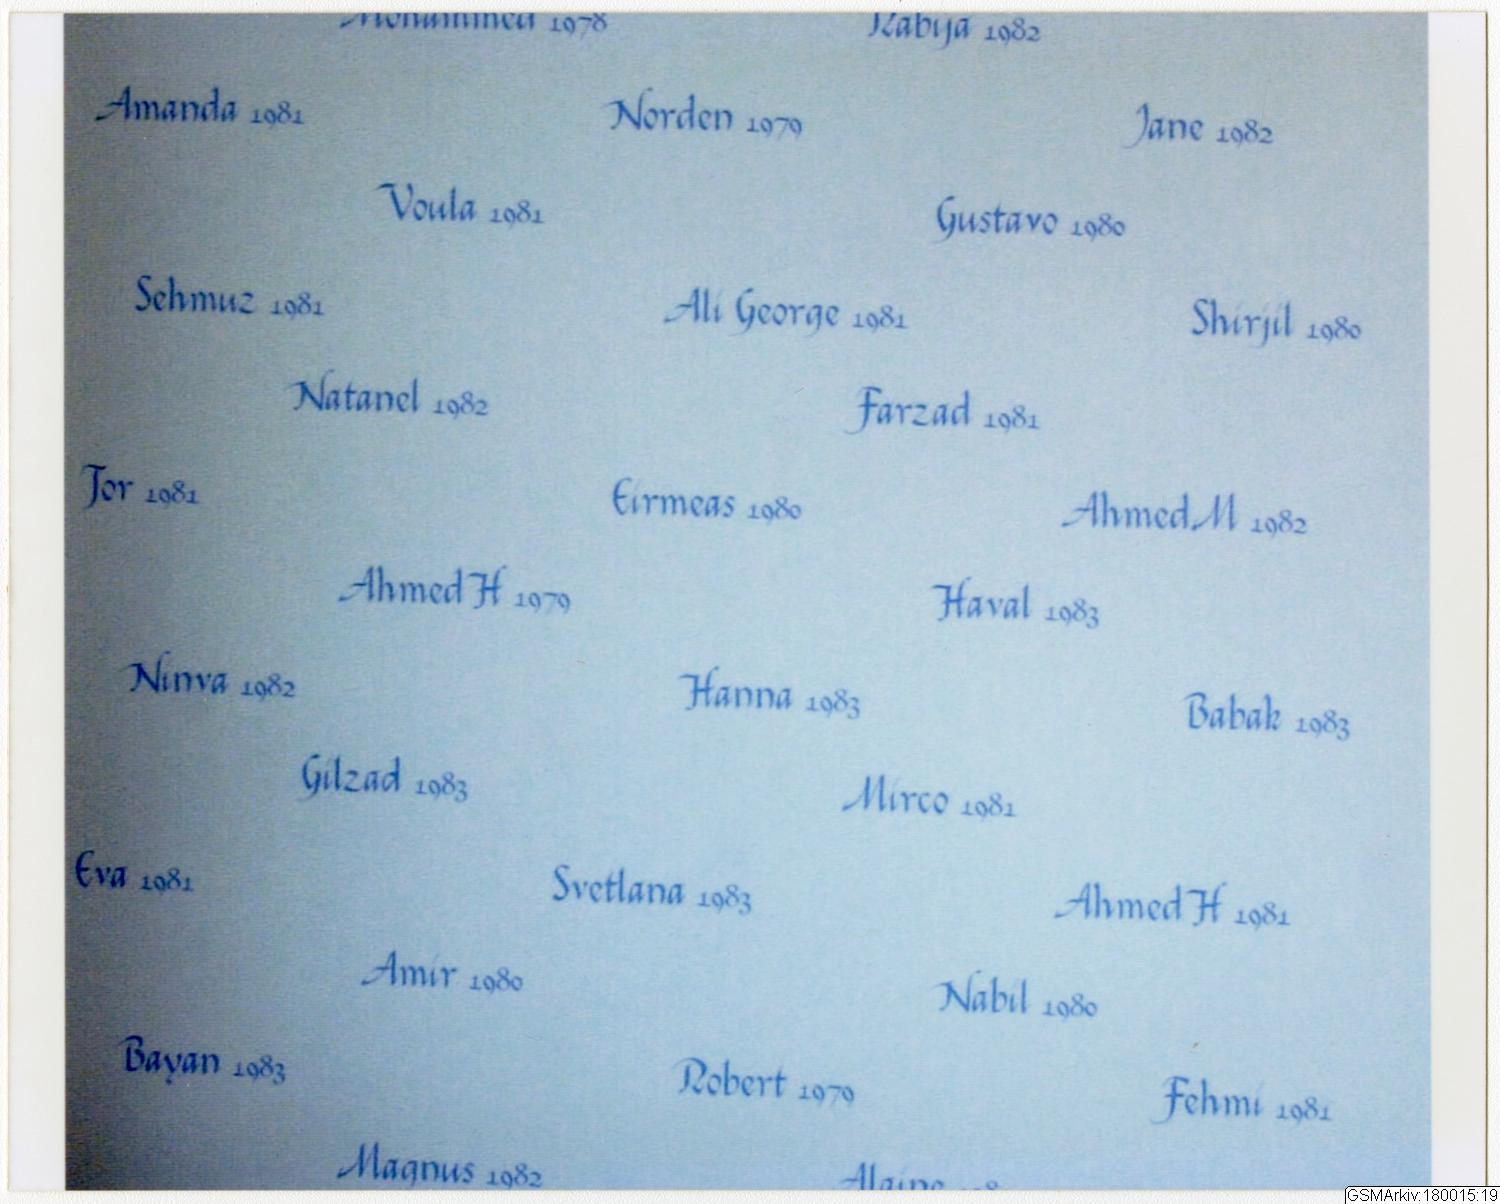 Mohammed 1978 Rabija 1982
Amanda 1981 Norden 1979 Jane 1982
Voula 1981 Gustavo 1980
Sehmuz 1981 Ali George 1981 Shirjil 1980
Natanel 1982 Farzad 1981
Tor 1981 Eirmeas 1980 Ahmed M 1982
Ahmed H 1979 Haval 1983
Ninva 1982 Hanna 1983 Babak 1983
Gilzad 1983 Mirco 1981
Eva 1981 Svetlana 1983 Ahmed H 1981
Amir 1980 Nabil 1980
Bayan 1983 Robert 1979 Fehmi 1981
Magnus 1982
GSMArkiv:180015:19